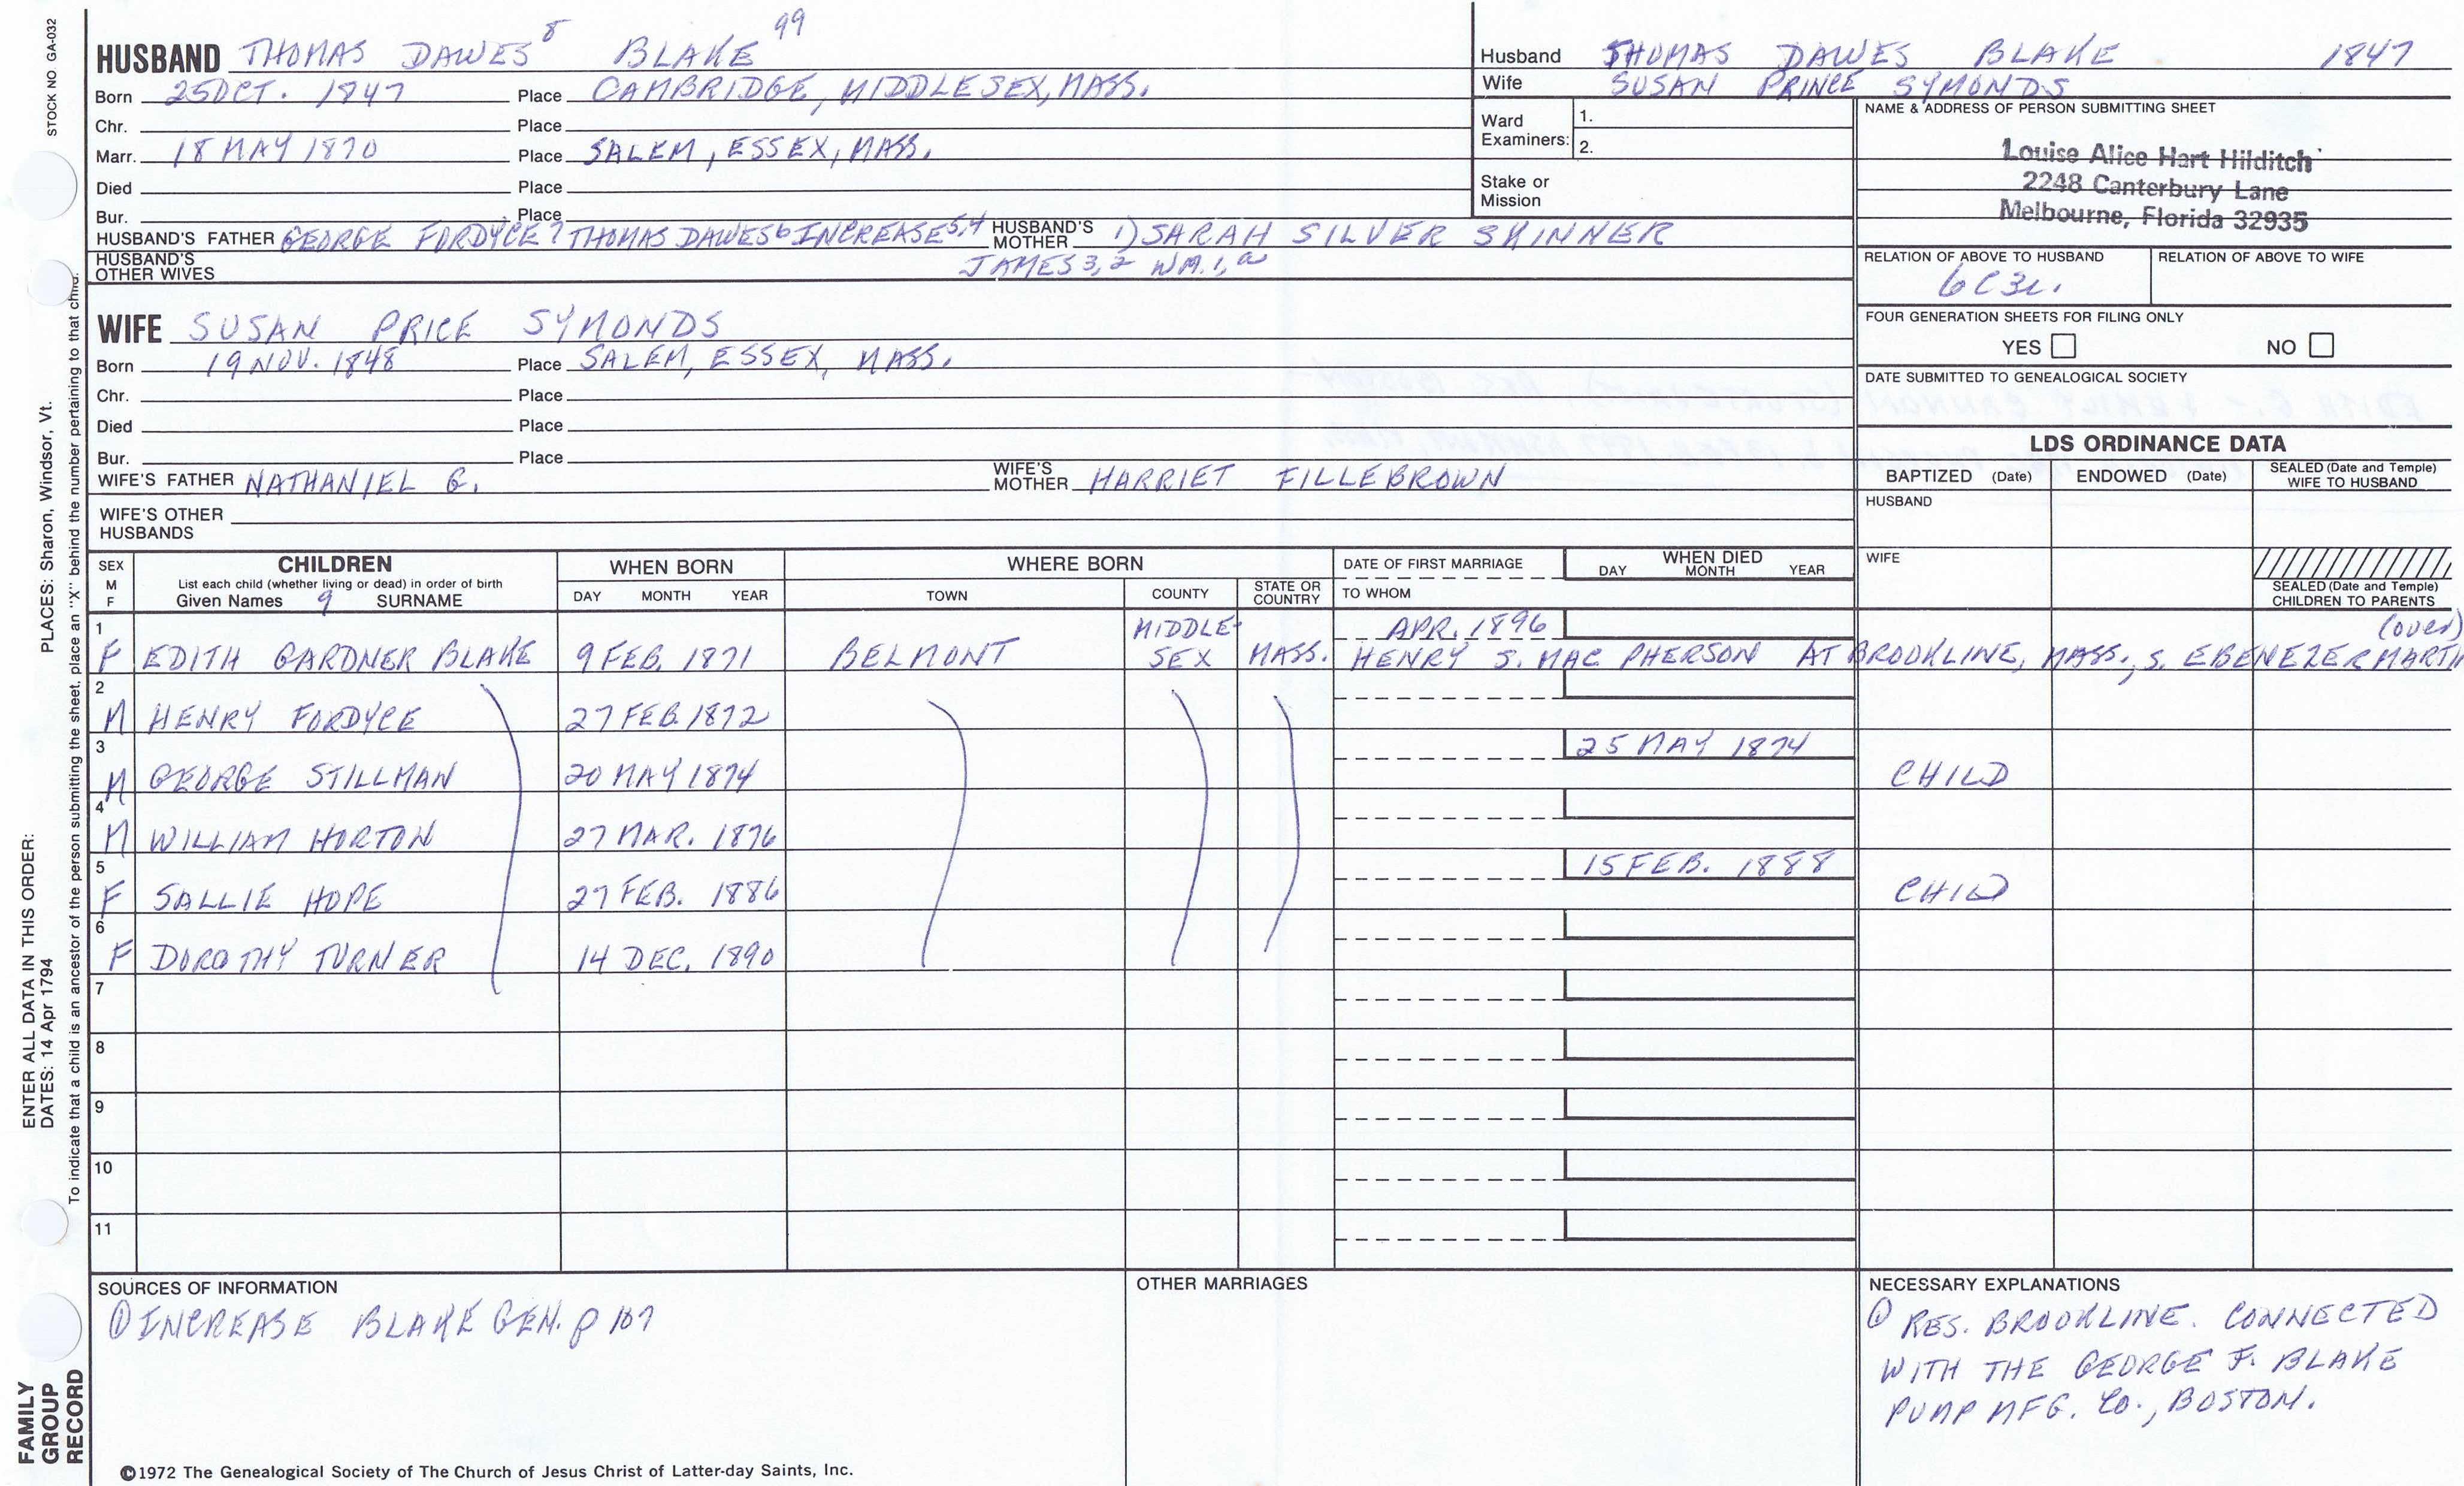 STOCK NO. GA-032
HUSBAND THOMAS DAWES 8 BLAKE 99
Born 25 OCT. 1847 Place CAMBRIDGE, MIDDLESEX, MASS.
Chr. Place
Marr. 18 MAY 1870 Place SALEM, ESSEX, MASS.
Died Place
Bur. Place
HUSBAND'S FATHER GEORGE FORDYCE 7 THOMAS DAWES 6 INCREASE 5,4 HUSBAND'S MOTHER 1) SARAH SILVER SKINNER
HUSBAND'S OTHER WIVES JAMES 3, 2 WM. 1, a
Husband THOMAS DAWES BLAKE 1847
Wife SUSAN PRINCE SYMONDS
Ward Examiners: 1.
2.
Stake or Mission
NAME & ADDRESS OF PERSON SUBMITTING SHEET
Louise Alice Hart Hilditch
2248 Canterbury Lane
Melbourne, Florida 32935
RELATION OF ABOVE TO HUSBAND RELATION OF ABOVE TO WIFE
6C3R.
FOUR GENERATION SHEETS FOR FILING ONLY
YES NO
DATE SUBMITTED TO GENEALOGICAL SOCIETY
WIFE SUSAN PRICE SYMONDS
Born 19 NOV. 1848 Place SALEM, ESSEX, MASS.
Chr. Place
Died Place
Bur. Place
WIFE'S FATHER NATHANIEL G. WIFE'S MOTHER HARRIET FILLEBROWN
WIFE'S OTHER HUSBANDS
LDS ORDINANCE DATA
BAPTIZED (Date) ENDOWED (Date) SEALED (Date and Temple) WIFE TO HUSBAND
HUSBAND
WIFE
SEALED (Date and Temple) CHILDREN TO PARENTS
SEX M F
CHILDREN
List each child (whether living or dead) in order of birth
Given Names 9 SURNAME
WHEN BORN
DAY MONTH YEAR
WHERE BORN
TOWN COUNTY STATE OR COUNTRY
DATE OF FIRST MARRIAGE
TO WHOM
WHEN DIED
DAY MONTH YEAR
1 F EDITH GARDNER BLAKE 9 FEB. 1871 BELMONT MIDDLE-SEX MASS. APR. 1896 (over)
HENRY S. MAC PHERSON AT BROOKLINE, MASS., S. EBENEZER
2 M HENRY FORDYCE 27 FEB. 1872
3 M GEORGE STILLMAN 20 MAY 1874 25 MAY 1874 CHILD
4 M WILLIAM HORTON 27 MAR. 1876
5 F SALLIE HOPE 27 FEB. 1886 15 FEB. 1888 CHILD
6 F DOROTHY TURNER 14 DEC. 1890
7
8
9
10
11
SOURCES OF INFORMATION
① INCREASE BLAKE GEN. p 107
OTHER MARRIAGES
NECESSARY EXPLANATIONS
① RES. BROOKLINE. CONNECTED
WITH THE GEORGE F. BLAKE
PUMP MFG. CO., BOSTON.
©1972 The Genealogical Society of The Church of Jesus Christ of Latter-day Saints, Inc.
ENTER ALL DATA IN THIS ORDER:
DATES: 14 Apr 1794 PLACES: Sharon, Windsor, Vt.
To indicate that a child is an ancestor of the person submitting the sheet, place an "X" behind the number pertaining to that child.
FAMILY
GROUP
RECORD